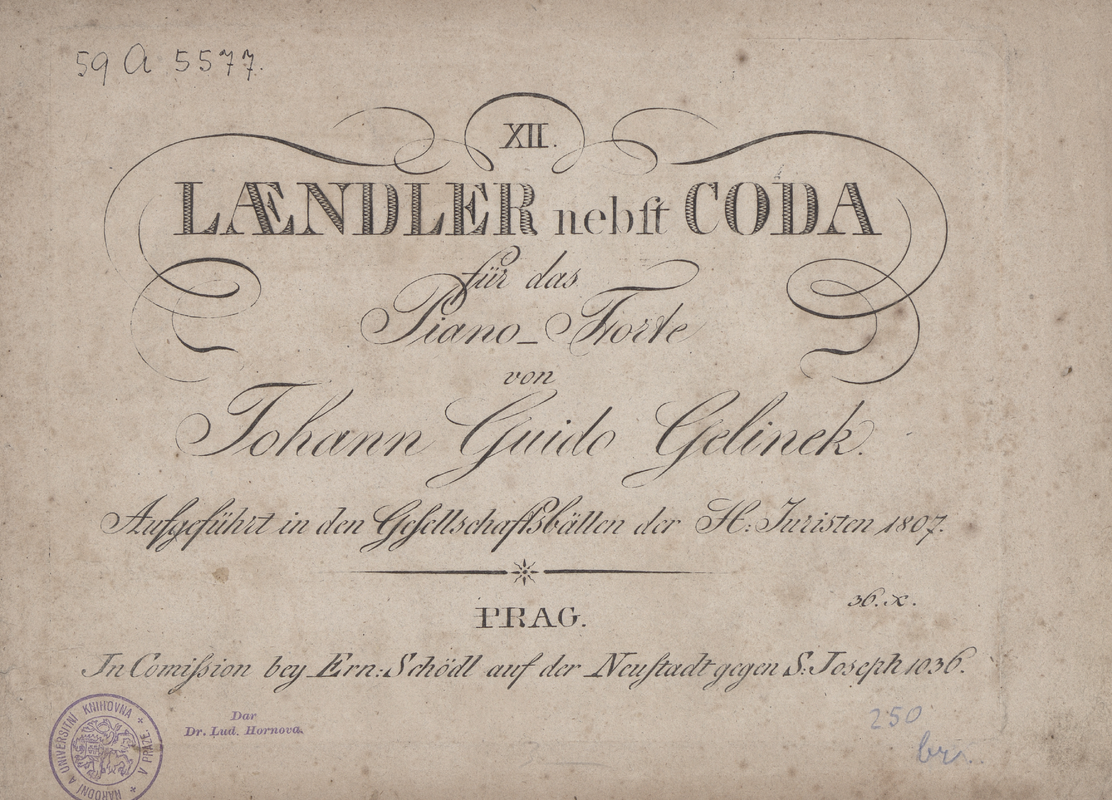 59 A 5577.
XII.
LÆNDLER nebſt CODA
für das
Piano_Forte
von
Johann Guido Gelinek.
Aufgeführt in den Geſellschaftsbällen der H: Juristen 1807.
PRAG.
36. x.
In Comiſsion bey Ern: Schödl auf der Neuſtadt gegen S: Joseph 1036.
NÁRODNÍ A UNIVERSITNÍ KNIHOVNA V PRAZE
Dar
Dr. Lud. Hornova.
250